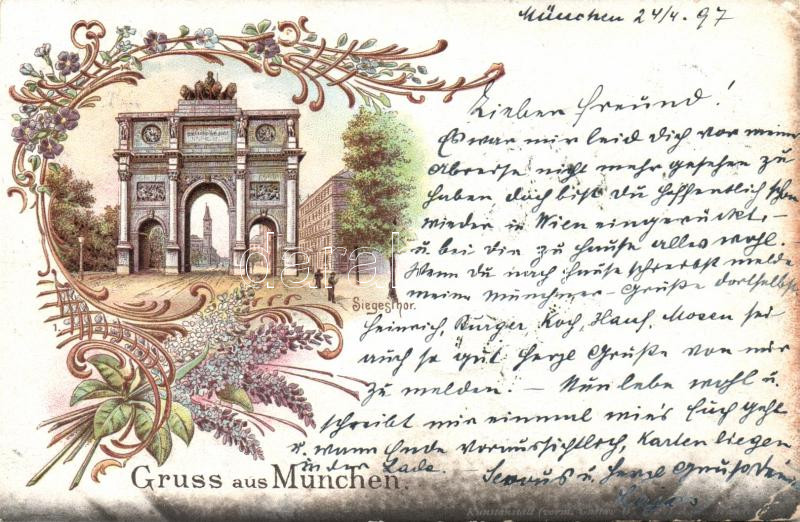 München 24/4. 97
Lieber Freund!
Es war mir leid Dich vor meiner
Abreise nicht mehr gesehen zu
haben doch bist Du hoffentlich schon
wieder in Wien eingerückt, -
u. bei Dir zu Hause alles wohl.
Wenn Du nach Hause schreibst melde
meine Münchner - Grüße dortselbst
Heinrich, Burger, Koch, Hauf, Mosen sei
auch so gut herzl Grüße von mir
zu melden. - Nun lebe wohl u.
schreibt mir einmal wie's Euch geht
u. wann Ende voraussichtlich, Karten liegen
in der Lade. - Servus u. herzl Gruß Dein
Siegesthor.
Gruss aus München.
darabanth
Kunstanstalt (vorm. Gustav